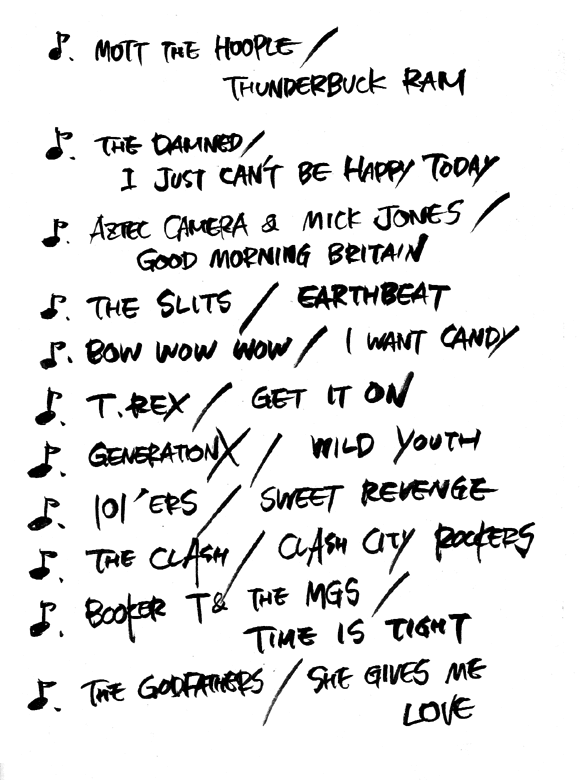 ♪. MOTT THE HOOPLE /
THUNDERBUCK RAM
♪. THE DAMNED /
I JUST CAN'T BE HAPPY TODAY
♪. AZTEC CAMERA & MICK JONES /
GOOD MORNING BRITAIN
♪. THE SLITS / EARTHBEAT
♪. BOW WOW WOW / I WANT CANDY
♪. T.REX / GET IT ON
♪. GENERATIONX / WILD YOUTH
♪. 101'ERS / SWEET REVENGE
♪. THE CLASH / CLASH CITY ROCKERS
♪. BOOKER T & THE MGS /
TIME IS TIGHT
♪. THE GODFATHERS / SHE GIVES ME
LOVE